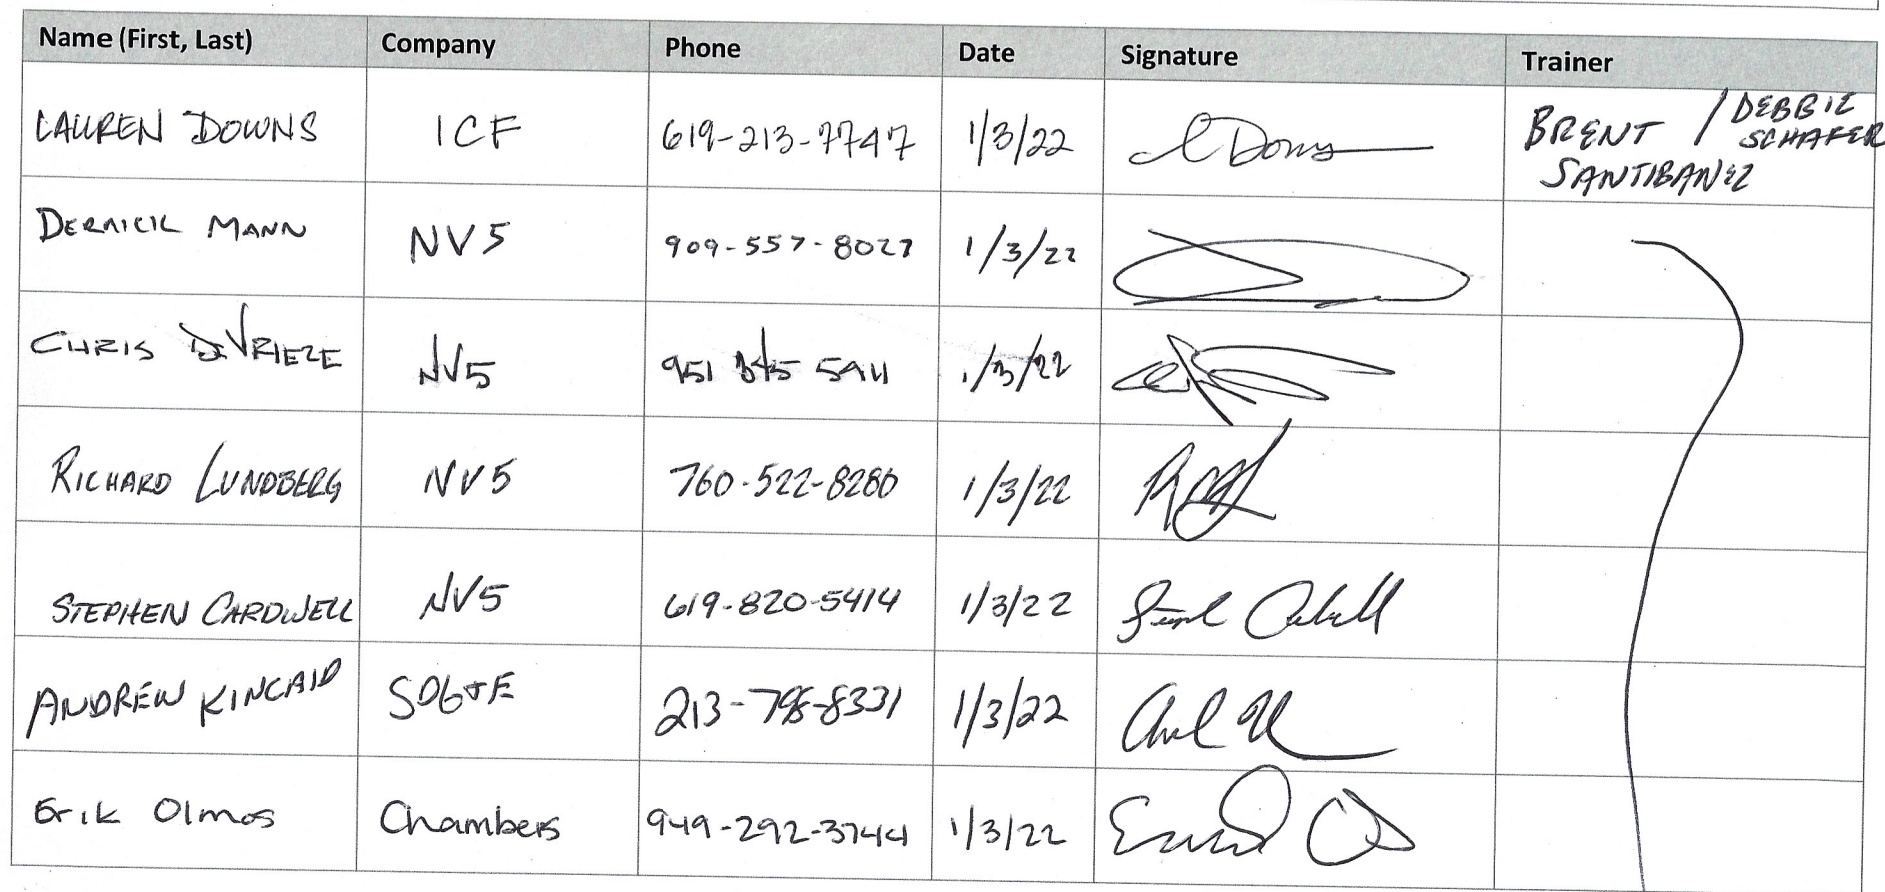 Name (First, Last) Company Phone Date Signature Trainer
LAUREN DOWNS ICF 619-213-7747 1/3/22 BRENT / DEBBIE
SCHAFER
SANTIBANEZ
DERRICK MANN NV5 909-557-8027 1/3/22
CHRIS DeVRIEZE NV5 951 5911 1/3/22
RICHARD LUNDBERG NV5 760-522-8280 1/3/22
STEPHEN CARDWELL NV5 619-820-5414 1/3/22
ANDREW KINCAID SDG&E 213-798-8331 1/3/22
Erik Olmos Chambers 949-292-3744 1/3/22